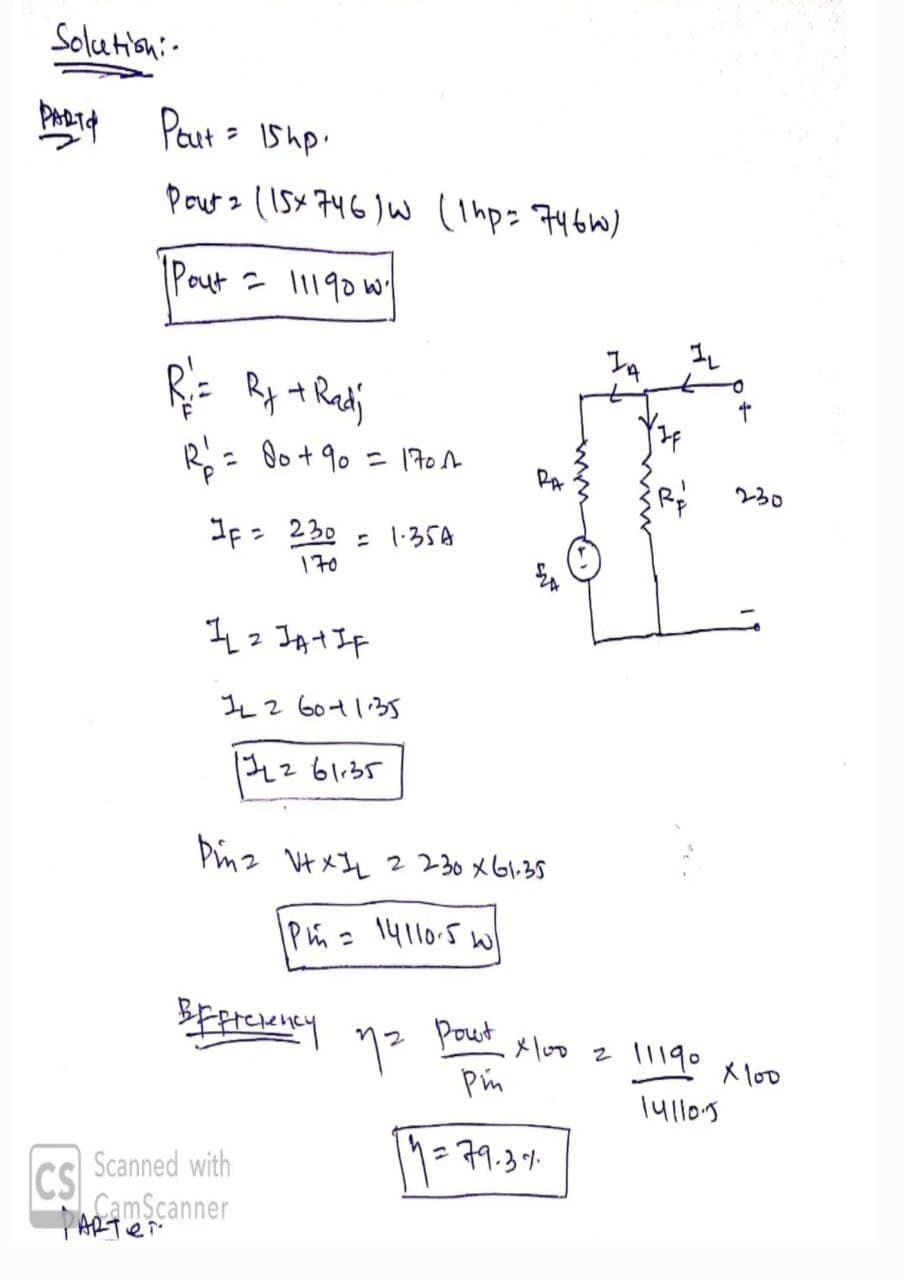 Solution:-
PART d
Pout = 15hp.
Pout = (15x746)W (1hp = 746W)
Pout = 11190 W.
RF' = Rf + Radj
RF' = 80 + 90 = 170 Ω
IF = 230/170 = 1.35A
IL = IA + IF
IL = 60 + 1.35
IL = 61.35
IA IL
+
IF
RA
RF'
230
EA
-
Pin = Vt x IL = 230 x 61.35
Pin = 14110.5 W
Efficiency η = Pout/Pin x100 = 11190/14110.5 x100
η = 79.3%
CS Scanned with
CamScanner
PART e:-